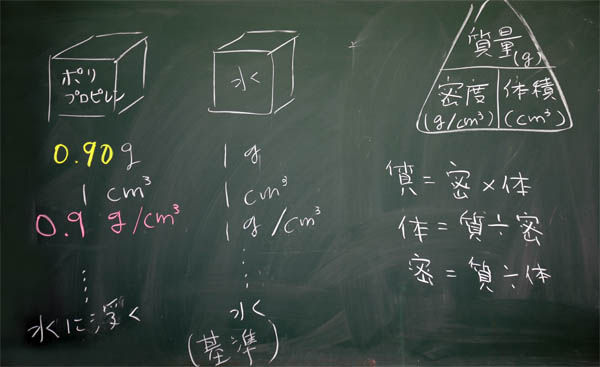 ポリ
プロピレン
0.90g
1 cm³
0.9 g/cm³
水に浮く
水
1 g
1 cm³
1 g/cm³
水
(基準)
質量(g)
密度 体積
(g/cm³) (cm³)
質=密×体
体=質÷密
密=質÷体